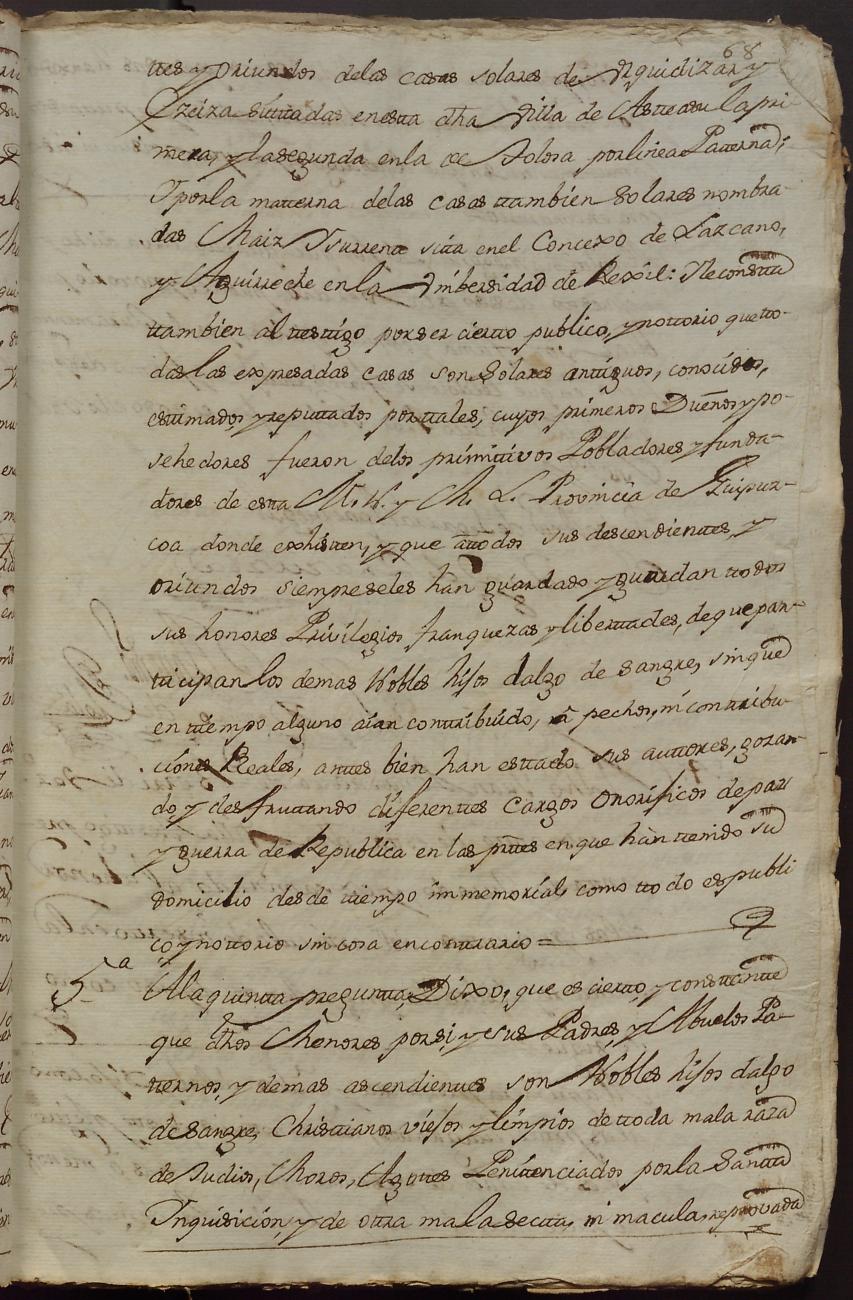 68
ttes y oriundos delas casas solares de Eguidizar y
Yzeiza sittuadas enesta dha Villa de Asteasu la pri-
mera, y lasegunda enla de Tolosa porlinea Paterna;
Y porla matterna delas casas ttambien Solares nombra-
das Maiz Ysurrene sita enel Concexo de Lazcano,
y Aguirreche enla Vnibersidad de Rexil: Yleconsta
ttambien al testigo porser cierto publico, y nottorio que tto-
das las expresadas casas son Solares anttiguos, conocidos,
estimados, y reputtados porttales, cuyos primeros Dueños y po-
sehedores fueron delos primitivos Pobladores y funda-
dores de esta M. N. y M. L. Provincia de Guipuz-
coa donde exhisten, y que attodos sus descendientes, y
oriundos siempre seles han guardado y guardan ttodos
sus honores Privilegios franquezas y liberttades, de que par-
ticipan los demas Nobles hijos dalgo de sangre, sinque
en tiempo alguno aian conttribuido, â pechos, ni conttribu-
ciones Reales, anttes bien han esttado sus auttores, gozan-
do y desfruttando diferenttes Cargos onorificos de paz
y guerra de Republica en las pttes en que han ttenido su
domicilio desde tiempo immemorial, como ttodo es publi
co, y nottorio sin cosa encontrario =
5.ª Ala quintta pregunta, Dixo, que es ciertto, y consttante
que dhos Menores porsi, y sus Padres, y Abuelos Pa-
tternos, y demas ascendientes son Nobles hijos dalgo
de sangre, Christianos viejos y limpios de ttoda mala raza
de Judios, Moros, Agottes Penitenciados porla Santta
Ynquisicion, y de ottra mala secta, ni macula, reprovada